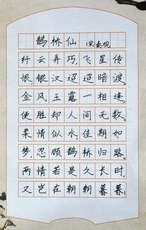 鹊桥仙 (宋)秦观
纤云弄巧飞星传
恨银汉迢迢暗渡
金风玉露一相逢
便胜却人间无数
柔情似水佳期如
梦忍顾鹊桥归路
两情若是久长时
又岂在朝朝暮暮